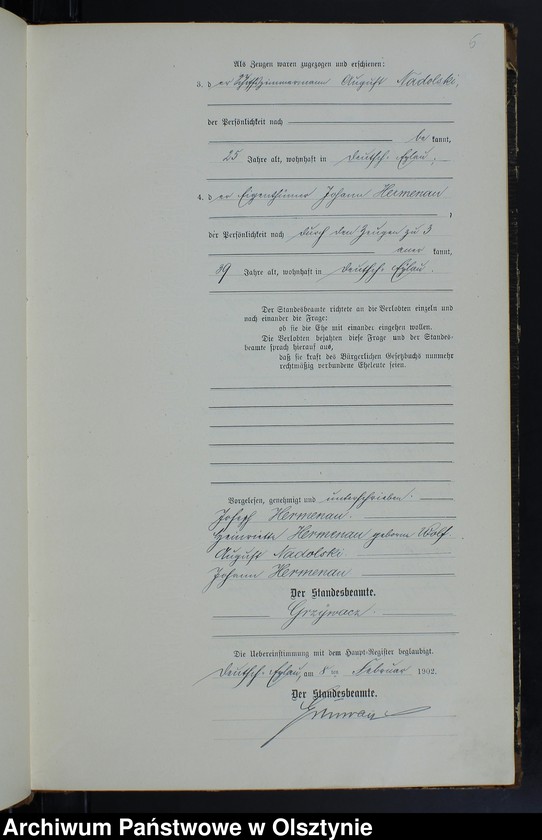 6
Als Zeugen waren zugezogen und erschienen:
3. d er August Nadolski,
der Persönlichkeit nach
be kannt,
25 Jahre alt, wohnhaft in Deutsch. Eylau;
4. d er Eigenthümer Johann Hermenau
,
der Persönlichkeit nach durch den Zeugen zu 3
aner kannt,
39 Jahre alt, wohnhaft in Deutsch. Eylau.
Der Standesbeamte richtete an die Verlobten einzeln und
nach einander die Frage:
ob sie die Ehe mit einander eingehen wollen.
Die Verlobten bejahten diese Frage und der Standes-
beamte sprach hierauf aus,
daß sie kraft des Bürgerlichen Gesetzbuchs nunmehr
rechtmäßig verbundene Eheleute seien.
Vorgelesen, genehmigt und unterschrieben.
Joseph Hermenau.
Henriette Hermenau geborne Wolf.
August Nadolski
Johann Hermenau
Der Standesbeamte.
Grzywacz.
Die Uebereinstimmung mit dem Haupt-Register beglaubigt.
Deutsch. Eylau, am 8 ten Februar 1902.
Der Standesbeamte.
Archiwum Państwowe w Olsztynie